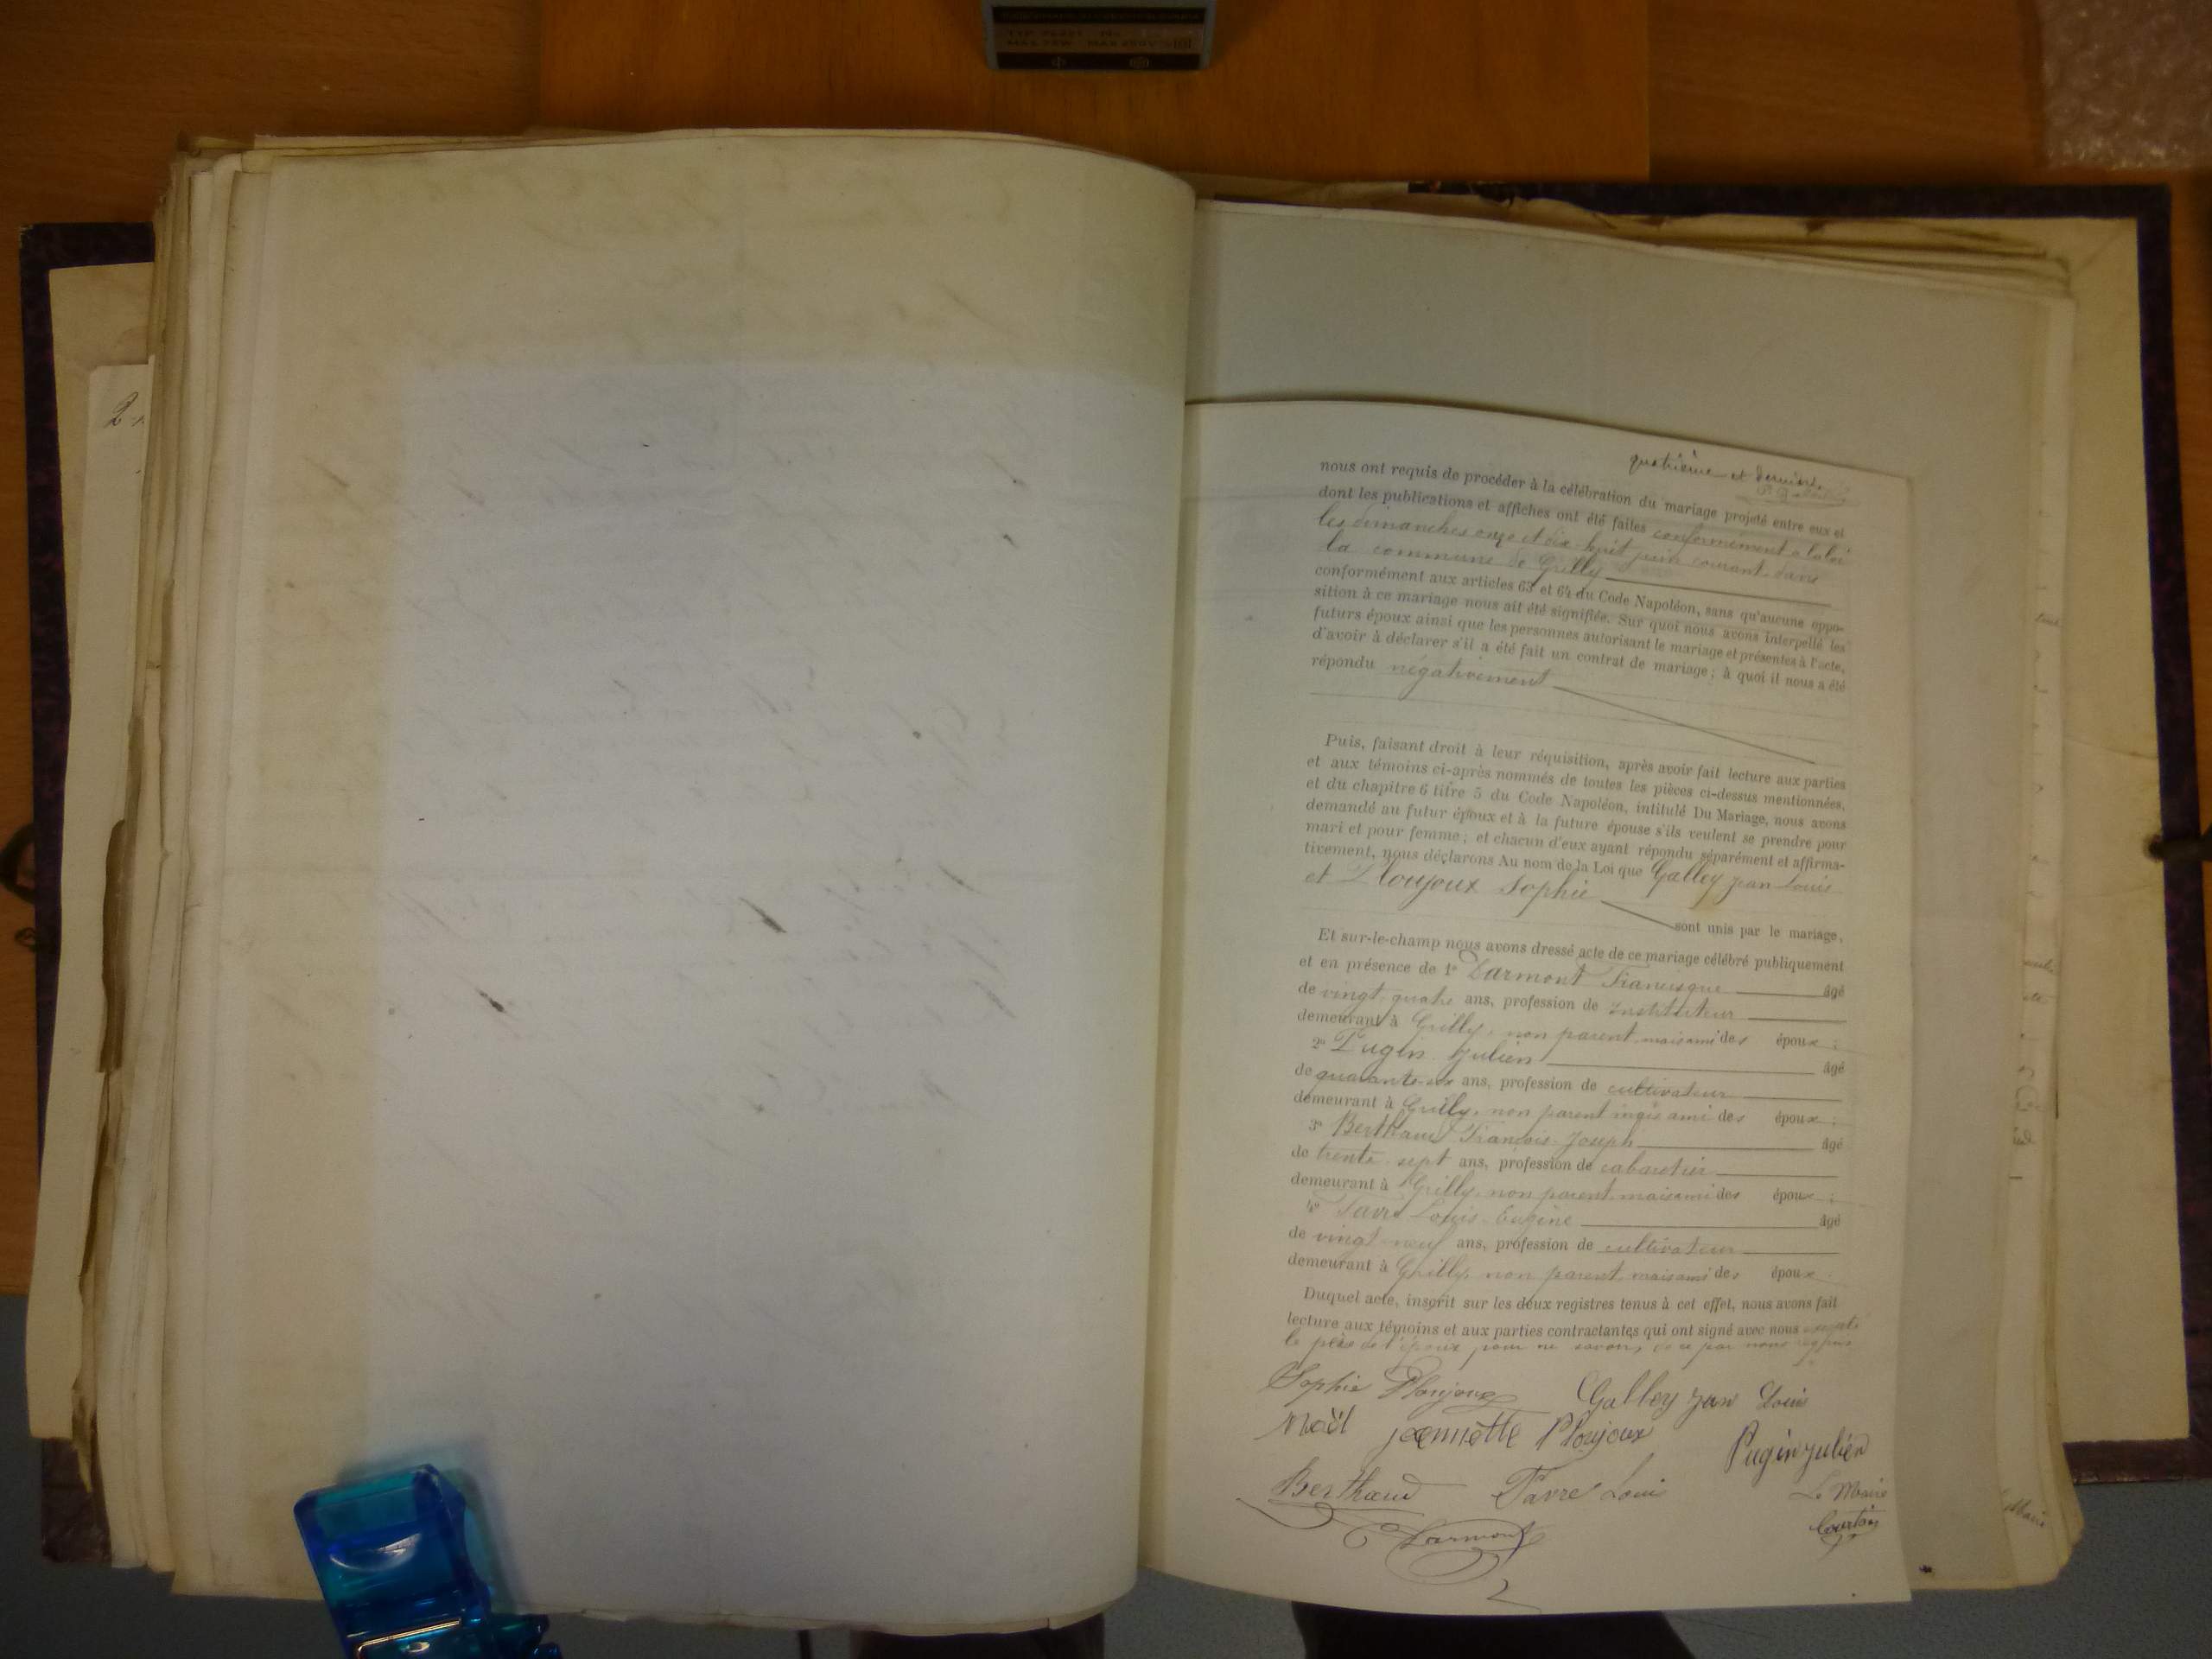 quatrième et dernière
nous ont requis de procéder à la célébration du mariage projeté entre eux et
dont les publications et affiches ont été faites conformément à la loi
les dimanches onze et dix huit juin courant dans
la commune de Grilly
conformément aux articles 63 et 64 du Code Napoléon, sans qu'aucune oppo-
sition à ce mariage nous ait été signifiée. Sur quoi nous avons interpellé les
futurs époux ainsi que les personnes autorisant le mariage et présentes à l'acte,
d'avoir à déclarer s'il a été fait un contrat de mariage; à quoi il nous a été
répondu négativement
Puis, faisant droit à leur réquisition, après avoir fait lecture aux parties
et aux témoins ci-après nommés de toutes les pièces ci-dessus mentionnées,
et du chapitre 6 titre 5 du Code Napoléon, intitulé Du Mariage, nous avons
demandé au futur époux et à la future épouse s'ils veulent se prendre pour
mari et pour femme; et chacun d'eux ayant répondu séparément et affirma-
tivement, nous déclarons Au nom de la Loi que Galley Jean Louis
et Ploujoux Sophie
sont unis par le mariage,
Et sur-le-champ nous avons dressé acte de ce mariage célébré publiquement
et en présence de 1° Darmont Francisque âgé
de vingt quatre ans, profession de instituteur
demeurant à Grilly, non parent mais ami des époux;
2° Pugin Julien âgé
de quarante ans, profession de cultivateur
demeurant à Grilly, non parent mais ami des époux;
3° Berthaud François Joseph âgé
de trente-sept ans, profession de cabaretier
demeurant à Grilly, non parent mais ami des époux;
4° Favre Louis Eugène âgé
de vingt neuf ans, profession de cultivateur
demeurant à Grilly, non parent mais ami des époux
Duquel acte, inscrit sur les deux registres tenus à cet effet, nous avons fait
lecture aux témoins et aux parties contractantes qui ont signé avec nous excepté
le père de l'époux pour ne savoir, de ce par nous requis
Sophie Ploujoux Galley Jean Louis
Noël Jeannette Ploujoux
Pugin Julien
Berthaud Favre Louis
Le Maire
Courtois
Darmont